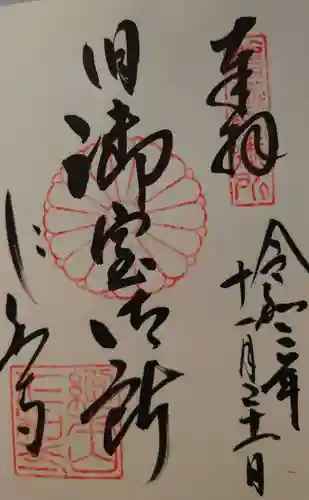 奉拝
令和二年
十一月二十一日
旧御室御所
仁和寺